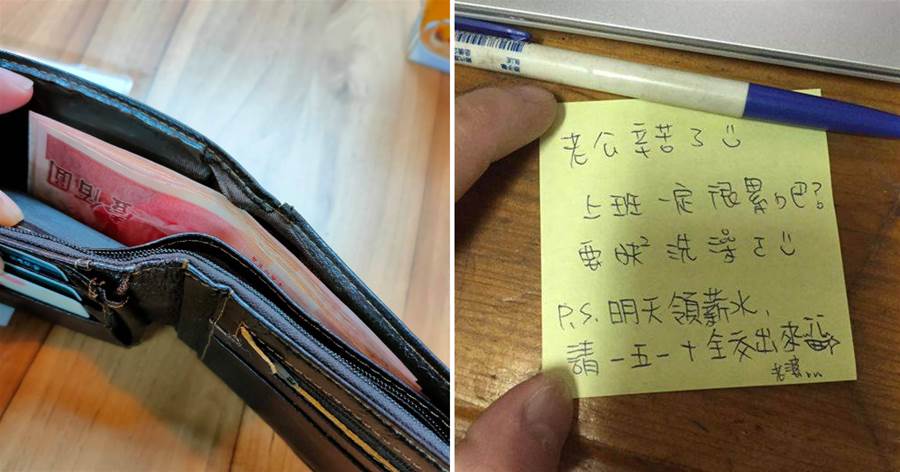 壹佰圓
老公辛苦了
上班一定很累吧?
要快洗澡
P.S. 明天領薪水,
請一五一十全交出來
老婆